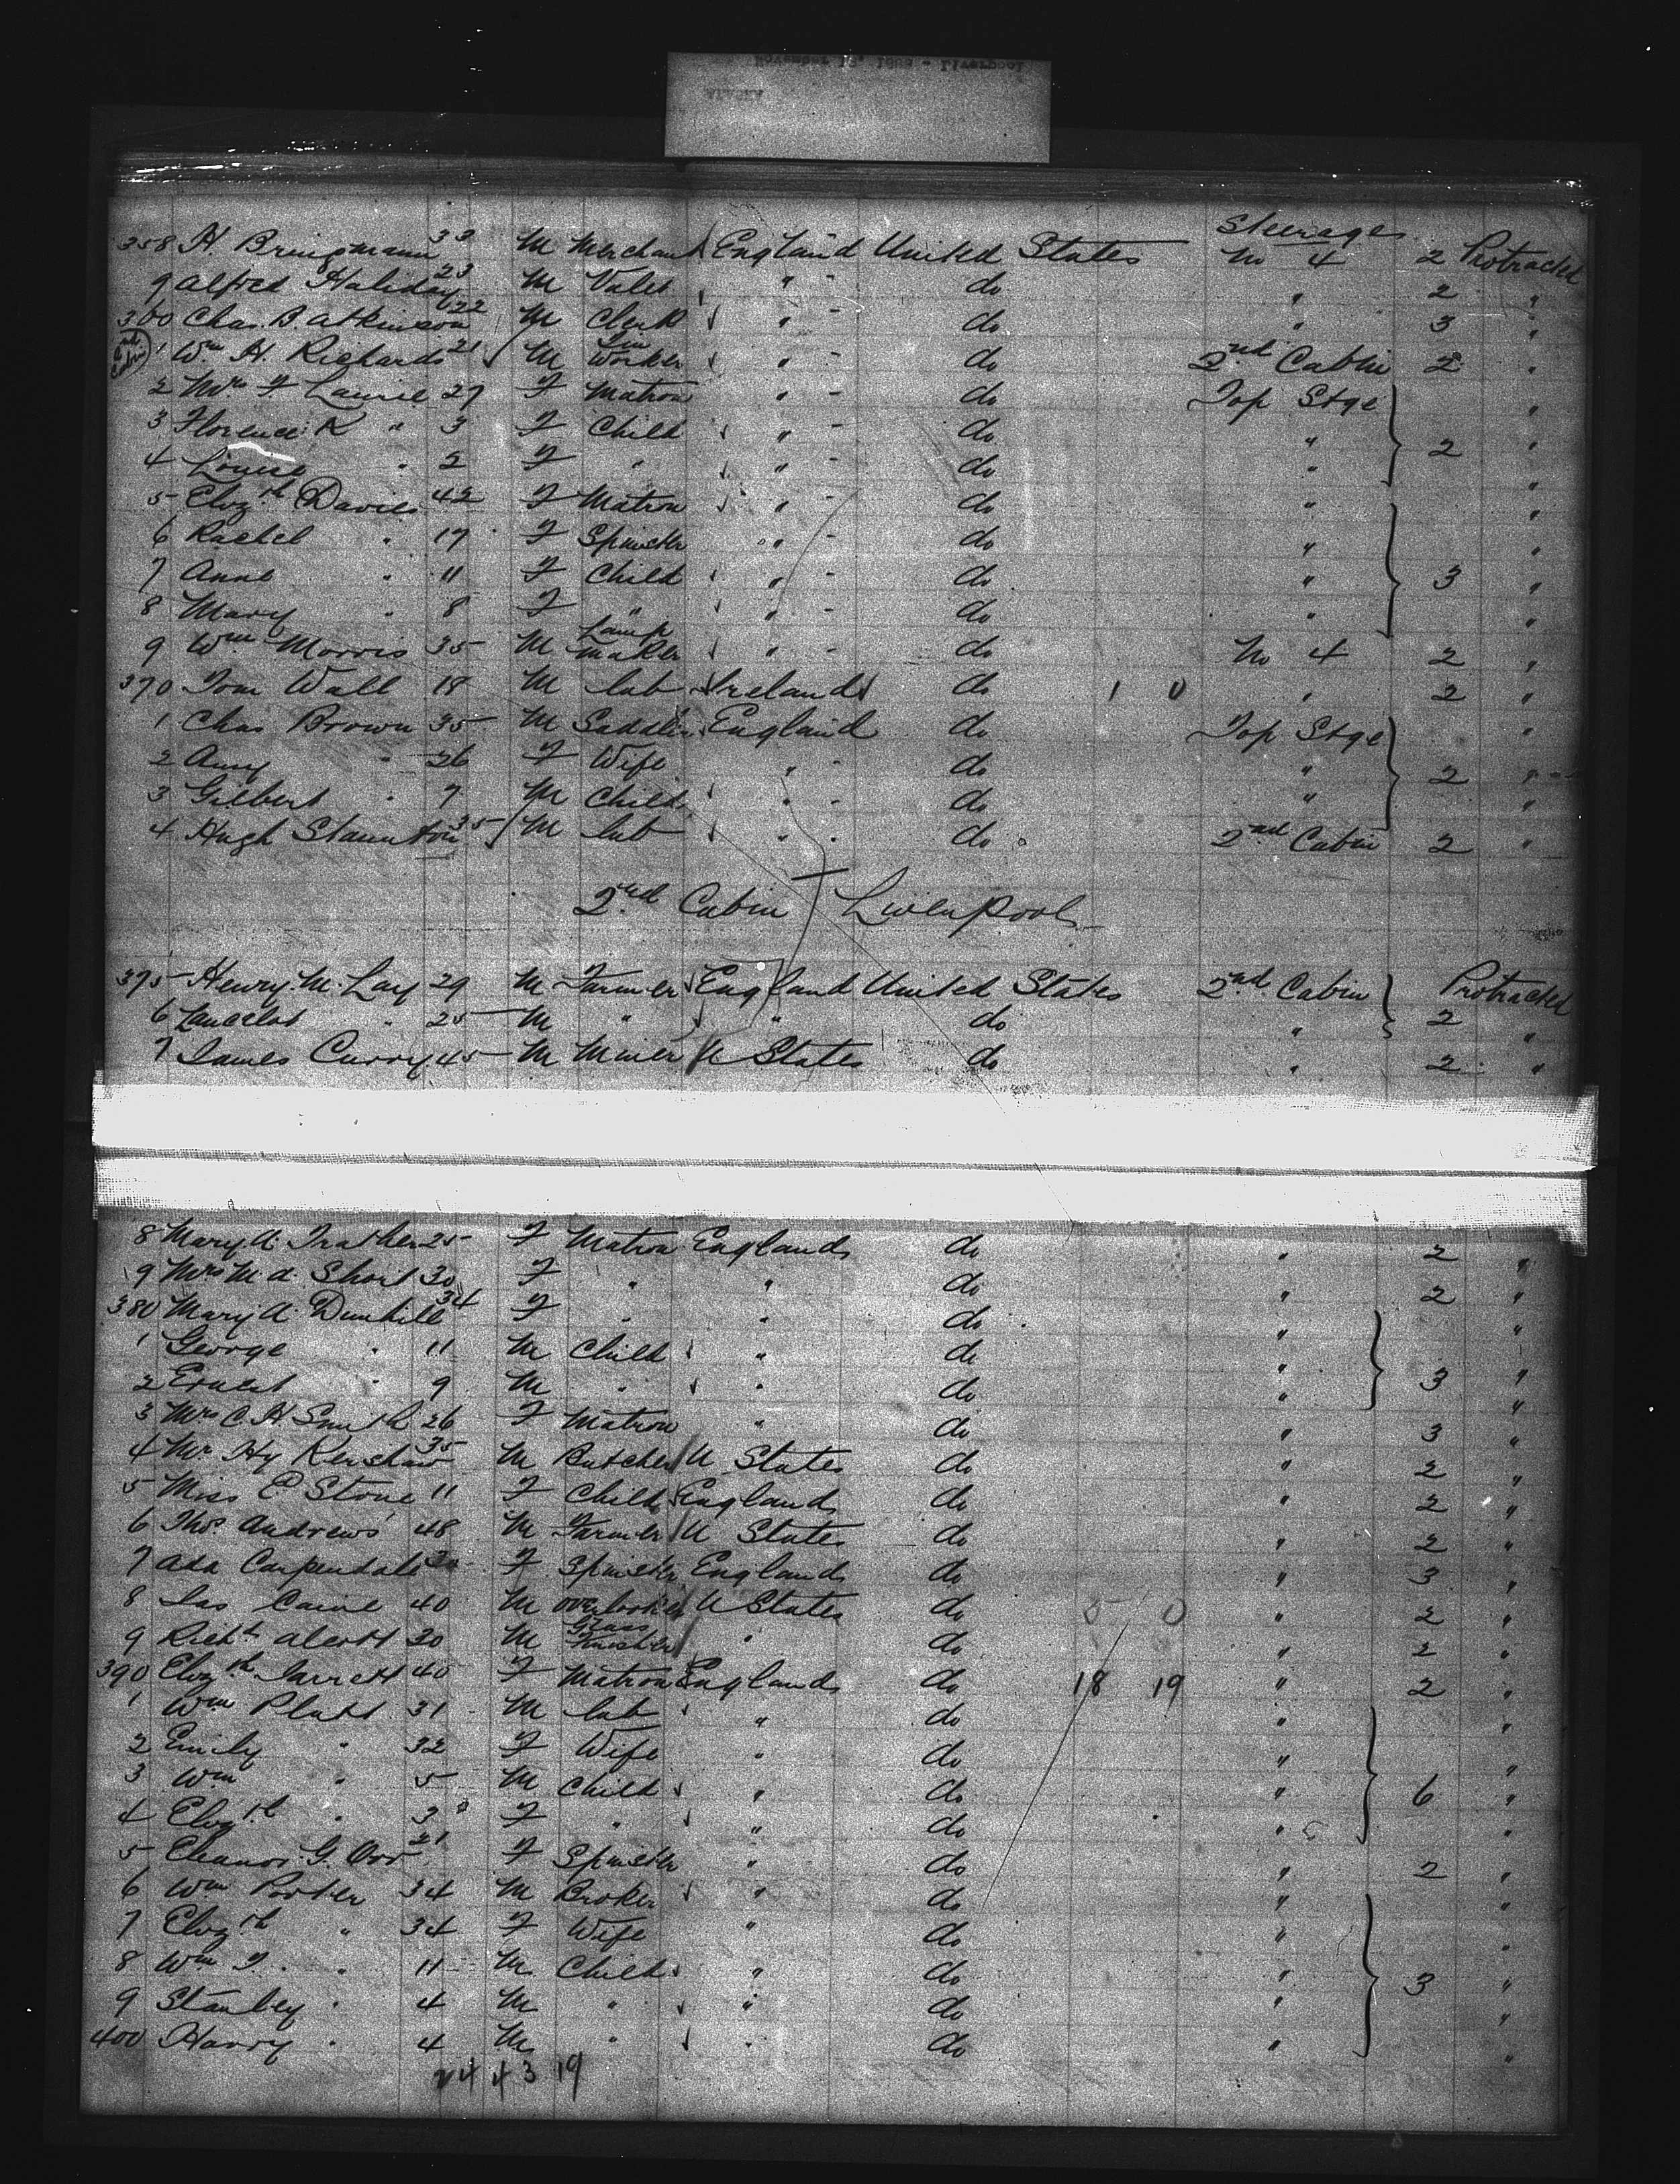 November 19, 1888 - Liverpool
ALASKA
Steerage
358 H. Bringmann 33 M Merchant England United States No 4 2 Protracted
9 Alfred Haliday 23 M Valet " - do " 2 "
360 Chas. B. Atkinson 22 M Clerk " - do " 3 "
1 Wm H. Richards 21 M Tin Worker " - do 2nd Cabin 2 "
2 Mrs F Laurie 27 F Matron " - do Top Stge "
3 Florence K " 3 F Child " - do " 2 "
4 Louise " 2 F " " - do " "
5 Elizth Davies 42 F Matron " - do " "
6 Rachel " 17 F Spinster " - do " "
7 Anne " 11 F Child " - do " 3 "
8 Mary " 8 F " " - do " "
9 Wm Morris 35 M Lamp maker " - do No 4 2 "
370 Tom Wall 18 M lab Ireland do 1 0 " 2 "
1 Chas Brown 35 M Saddler England do Top Stge "
2 Amy " 26 F Wife " - do " 2 "
3 Gilbert " 7 M Child " - do " "
4 Hugh Staunton 35 M lab " - do 2nd Cabin 2 "
2nd Cabin Liverpool
375 Henry M. Lay 29 M Farmer England United States 2nd Cabin Protracted
6 Lancelot " 25 M " " do " 2 "
7 James Curry 45 M Miner U States do " 2 "
8 Mary A. Trather 25 F Matron England do " 2 "
9 Mrs M. A. Short 30 F " " do " 2 "
380 Mary A. Dunhill 34 F " " do " "
1 George " 11 M Child " do " "
2 Ernest " 9 M " " do " 3 "
3 Mrs C. H Smith 26 F Matron " do " 3 "
4 Mr Hy Renshaw 35 M Butcher U States do " 2 "
5 Miss E Stone 11 F Child England do " 2 "
6 Thos Andrews 48 M Farmer U State do " 2 "
7 Ada Carpendale F Spinster England do " 3 "
8 Jas Caine 40 M overlooker U States do 5 0 " 2 "
9 Richt Alcott 30 M Glass Finisher " do " 2 "
390 Elizth Jarrett 40 F Matron England do 18 19 " 2 "
1 Wm Platt 31 M lab " do " "
2 Emily " 32 F Wife " do " "
3 Wm " 5 M Child " do " 6 "
4 Elizth " 3 F " " do " "
5 Eleanor G. Orr 21 F Spinster " do " 2 "
6 Wm Porter 34 M Broker " do " "
7 Elizth " 34 F Wife " do " "
8 Wm T. " 11 M Child " do " 3 "
9 Stanley " 4 M " " do " "
400 Harry " 4 M " " do " "
24 4 3 19